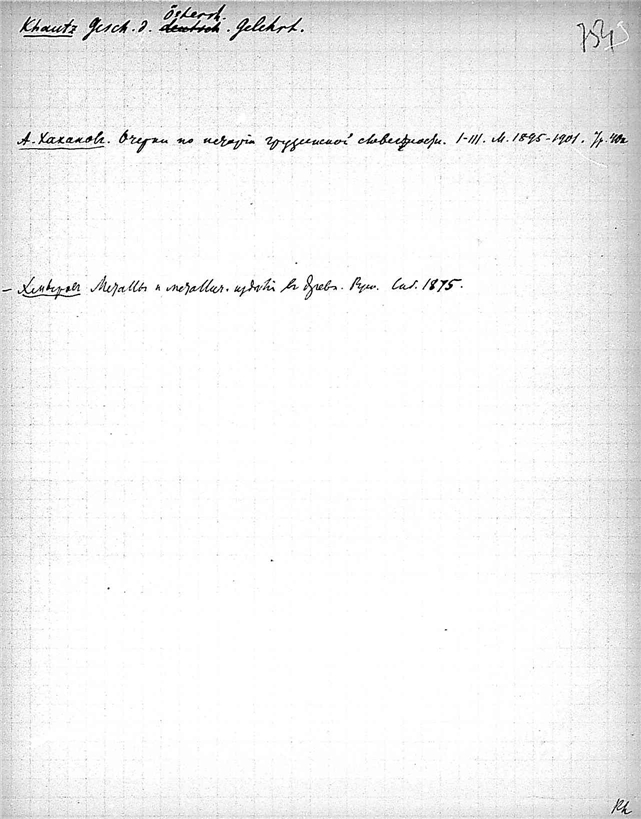 österr.
Khautz Gesch. d. deutsch. Gelehrt.
А. Хахановъ. Очерки по исторіи грузинской словесности. I-III. М. 1895-1901.
– Хмыровъ Металлы и металлич. издѣлія въ древн. Руси. Спб. 1875.
Kh